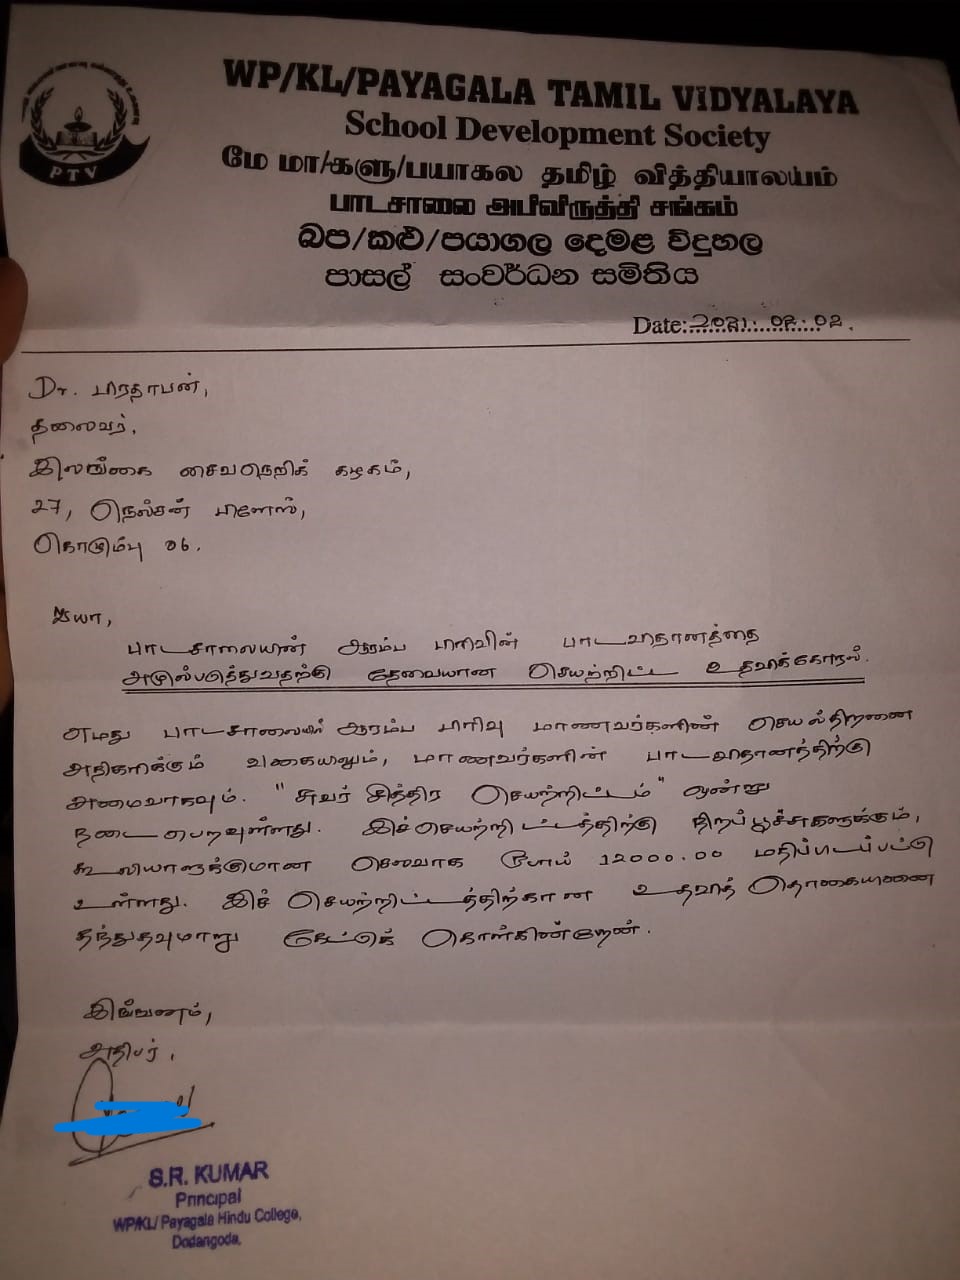 WP/KL/PAYAGALA TAMIL VIDYALAYA
School Development Society
மே மா/களு/பயாகல தமிழ் வித்தியாலயம்
பாடசாலை அபிவிருத்தி சங்கம்
බප/කළු/පයාගල දෙමළ විදුහල
පාසල් සංවර්ධන සමිතිය
PTV
Date:2021.02.02.
Dr. பிரதாபன்,
தலைவர்,
இலங்கை சைவநெறிக் கழகம்,
27, நெல்சன் பிளேஸ்,
கொழும்பு 06.
ஐயா,
பாடசாலையின் ஆரம்ப பிரிவின் பாடவிதானத்தை
அமுல்படுத்துவதற்கு தேவையான செயற்றிட்ட உதவிக்கோரல்.
எமது பாடசாலையில் ஆரம்ப பிரிவு மாணவர்களின் செயல்திறனை
அதிகரிக்கும் வகையிலும், மாணவர்களின் பாடவிதானத்திற்கு
அமைவாகவும். "சுவர் சித்திர செயற்றிட்டம்" ஒன்று
நடைபெறவுள்ளது. இச்செயற்றிட்டத்திற்கு நிறப்பூச்சுகளுக்கும்,
கூலியாளுக்குமான செலவாக ரூபாய் 12000.00 மதிப்பிடப்பட்டு
உள்ளது. இச் செயற்றிட்டத்திற்கான உதவித் தொகையினை
தந்துதவுமாறு கேட்டுக் கொள்கின்றேன்.
இங்ஙனம்,
அதிபர்.
S.R. KUMAR
Principal
WP/KL/ Payagala Hindu College,
Dodangoda.